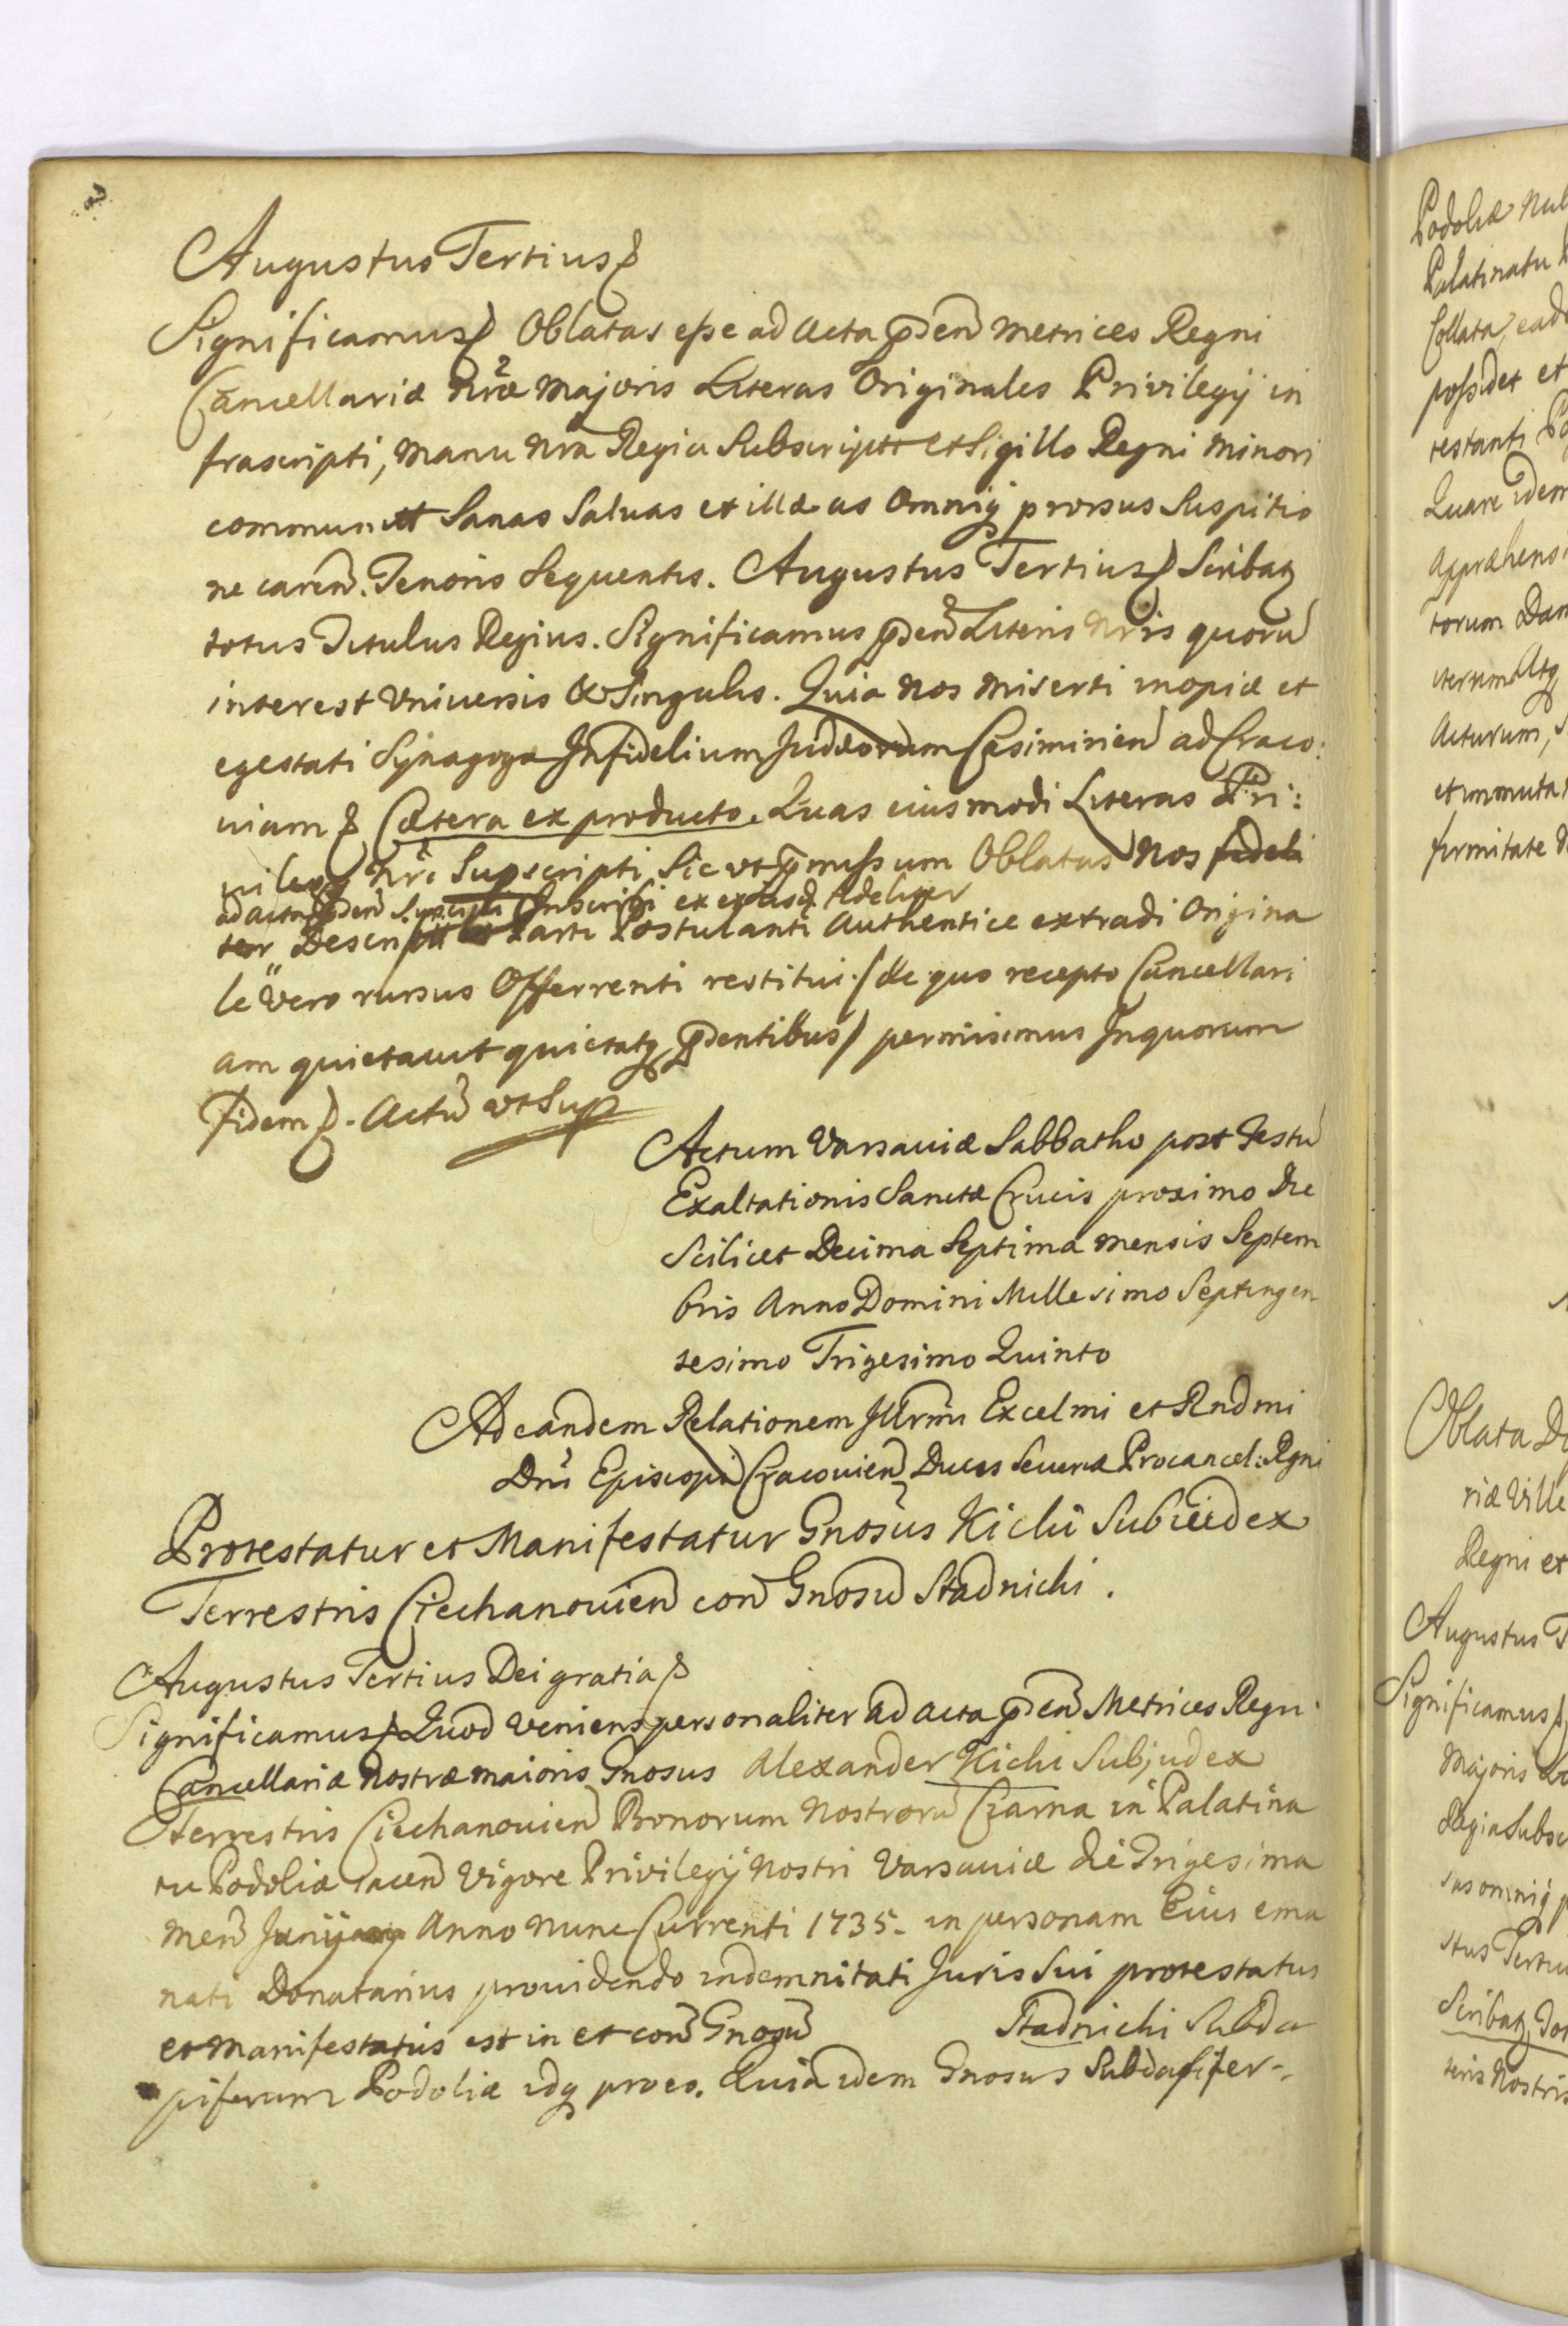 Augustus Tertius
Significamus Oblatas esse ad Acta p̃sen̄ Metrices Regni
Cancellariæ nr̃æ Majoris Literas Originales Privilegij in
frascripti, Manu nra Regia Subscript et Sigillo Regni Minori
communit Sanas Salvas et illæsas Omniq̨ prorsus Suspitio
ne caren̄. Tenoris Sequentis. Augustus Tertius Scribatq̨
totus Titulus Regius. Significamus p̃sen̄ Literis Nris quorū
interest Universis & Singulis. Quia Nos Miserti inopiæ et
egestati Synagogæ Infidelium Judæorum Casimirien̄ ad Craco:
viam Cætera ex producto. Quas eiusmodi Literas Pri:
vilegij Nri Supscripti Sic vt p̃missum Oblatas Nos fideli
ad Acta p̃sen̄ Inscribi ex eisdē fideliter
ter Descri Parti Postulanti Authentice extradi Origina
le Vero rursus Offerrenti restitui /de quo recepto Cancellari
am quietavit quietatq̨ p̃sentibus/ permisimus Inquorum
fidem. Actū vt Sup
Actum Varsaviæ Sabbatho post Festū
Exaltationis Sanctæ Crucis proximo die
Scilicet Decima Septima mensis Septem
bris Anno Domini Millesimo Septingen
tesimo Trigesimo Quinto
Ad eandem Relationem Illrmi Excelmi et Rndmi
Dni Episcopi Cracovien̄ Ducis Severiæ Procancel: Rgni
Protestatur et Manifestatur Gnosus Kicki Subiudex
Terrestris Ciechanovien̄ con̄ Gnosū Stadnicki.
Augustus Tertius Dei gratia
Significamus Quod veniens personaliter ad acta p̃sen̄ Metrices Regni
Cancellariæ Nostræ maioris Gnosus Alexander Kicki Subjudex
Terrestris Ciechanovien̄ Bonorum Nostrorū Czarna in Palatina
tu Podoliæ Iacen̄ Vigore Privilegij Nostri Varsaviæ die Trigesima
Men̄ Junij Anno Nunc Currenti 1735. in personam Eius ema
nati Donatarius providendo indemnitati Juris Sui protestatus
et Manifestatus est in et con̄ Gnosū Stadnicki Subda
piferum Podoliæ idq̨ pro eo. Quia idem Gnosus Subdapifer
Podoliæ
Palatinatu
Collata, ead
possidet et
testanti
Quare idem
Appræhens
torum
iterumAtq̨
Acturum,
et immuta
firmitate
Oblata
riæ Ville
Regni et
Augustus T
Significamus
Majoris
Regia Subsc
sas omniq̨ p
stus Tertiu
Scribatq̨ Tot
teris Nostris